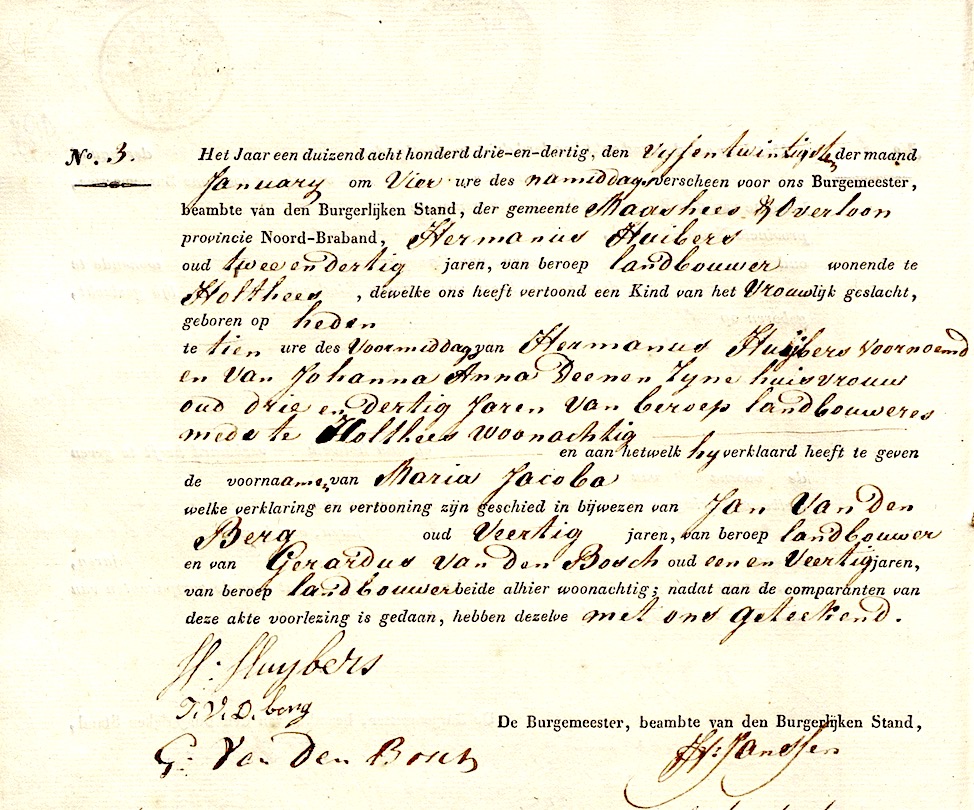 No. 3. Het Jaar een duizend acht honderd drie-en-dertig, den vyfentwintigsten der maand
January om Vier ure des namiddags verscheen voor ons Burgemeester,
beambte van den Burgerlijken Stand, der gemeente Maashees & Overloon
provincie Noord-Braband, Hermanus Huibers
oud twee en dertig jaren, van beroep landbouwer wonende te
Holthees, dewelke ons heeft vertoond een Kind van het Vrouwlijk geslacht,
geboren op heden
te tien ure des Voormiddags van Hermanus Huijbers voornoemd
en Van Johanna Anna Deenen Zyne huisvrouw
oud drie en dertig Jaren Van beroep landbouweres
mede te Holthees woonachtig
en aan hetwelk hy verklaard heeft te geven
de voornaamen van Maria Jacoba
welke verklaring en vertooning zijn geschied in bijwezen van Jan Van den
Berg oud Veertig jaren, van beroep landbouwer
en van Gerardus van den Bosch oud een en Veertig jaren,
van beroep landbouwer beide alhier woonachtig; nadat aan de comparanten van
deze akte voorlezing is gedaan, hebben dezelve met ons geteekend.
H. Huybers
J. V. D. berg
De Burgemeester, beambte van den Burgerlijken Stand,
G. Van Den Bosch
Janssen